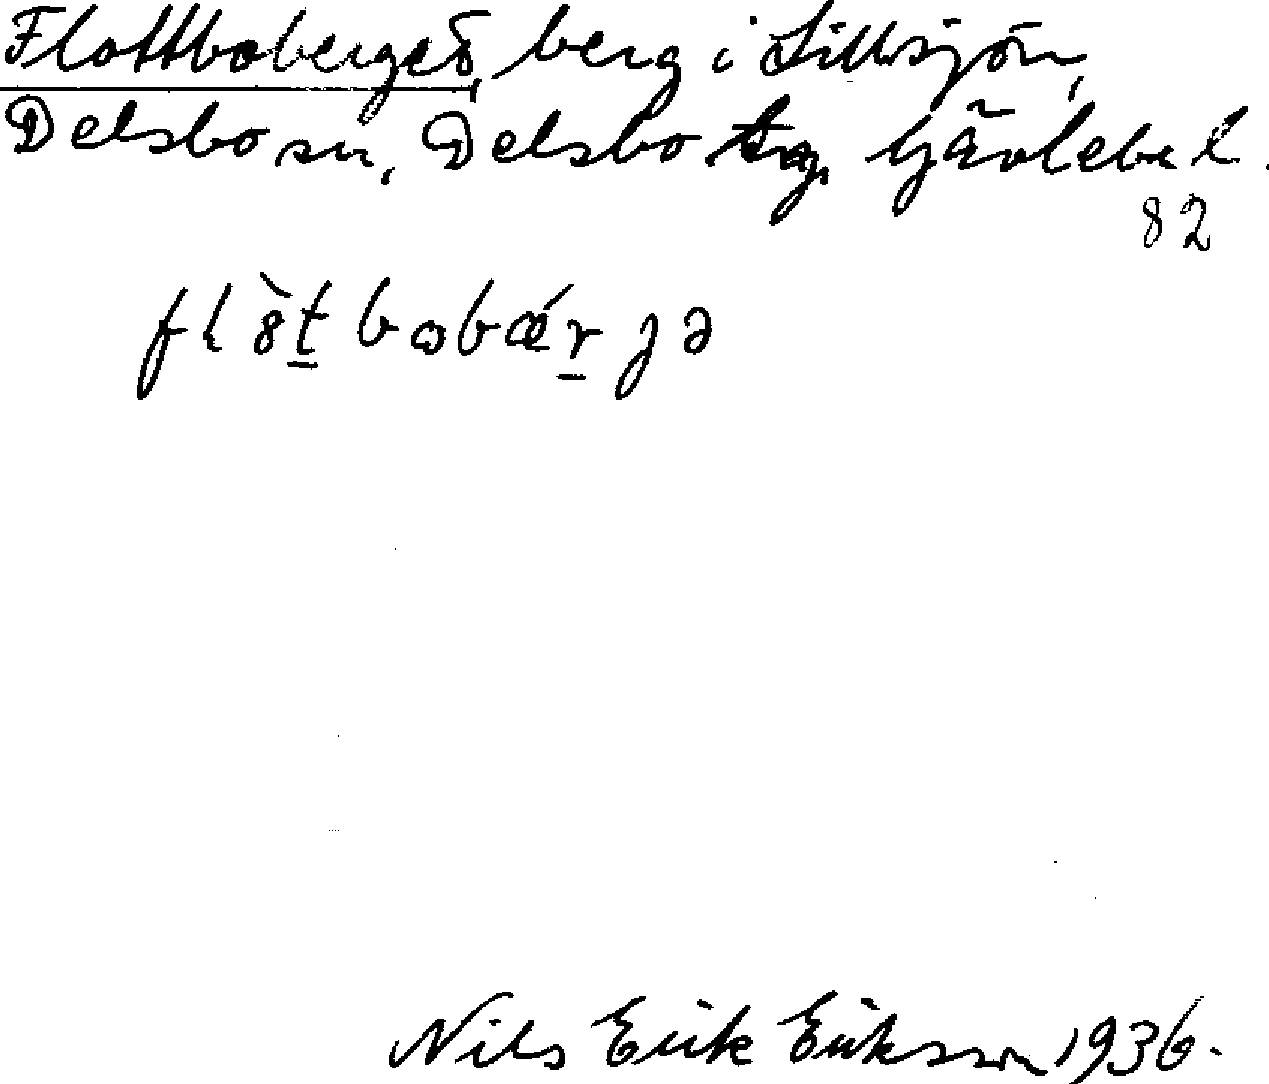 Flottboberget, berg i Sillsjön,
Delsbo sn, Delsbo tg, Gävleb. l.
82
fl òt bωbǽr ȷə
Nils Erik Eriksson 1936.